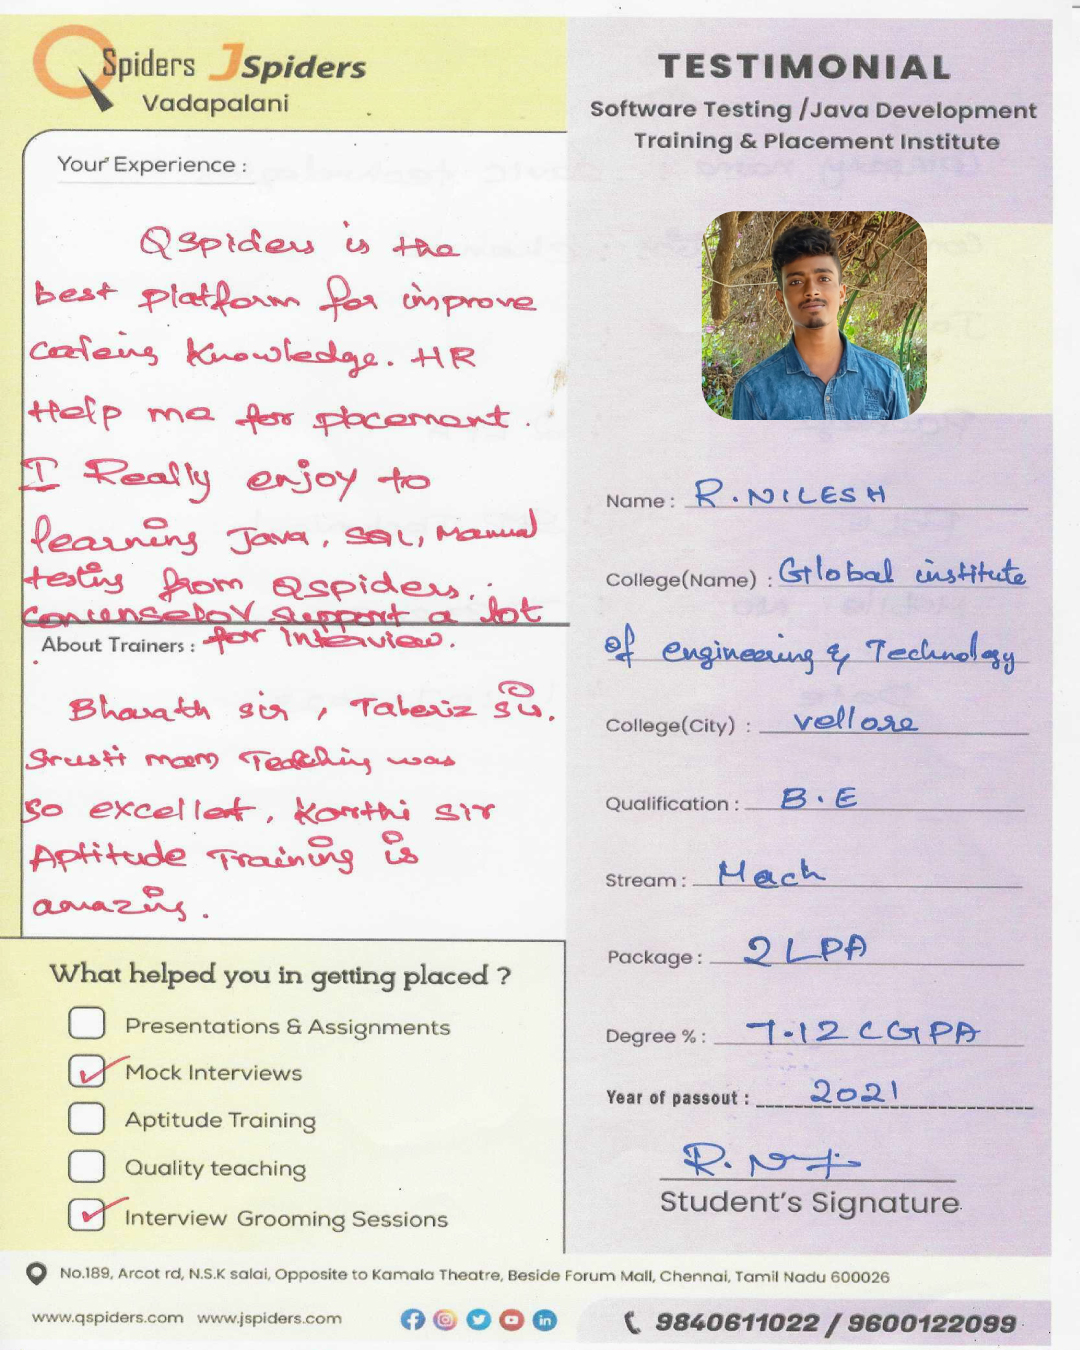 QSpiders JSpiders
Vadapalani
Your Experience :
QSpiders is the
best platform for improve
codeing Knowledge. HR
Help me for placement.
I Really enjoy to
learning Java, SQL, Manual
testing from Qspiders.
support a lot
for interview.
About Trainers :
Bharath sir, Taberiz sir.
Srusti mam Teaching was
so excellet, Karthi sir
Aptitude Training is
amazing.
What helped you in getting placed ?
Presentations & Assignments
Mock Interviews
Aptitude Training
Quality teaching
Interview Grooming Sessions
TESTIMONIAL
Software Testing /Java Development
Training & Placement Institute
Name : R.NILESH
College(Name) : Global institute
of engineering & Technology
College(City) : vellore
Qualification : B.E
Stream : Mech
Package : 2 LPA
Degree % : 7.12 CGPA
Year of passout : 2021
Student's Signature
No.189, Arcot rd, N.S.K salai, Opposite to Kamala Theatre, Beside Forum Mall, Chennai, Tamil Nadu 600026
www.qspiders.com www.jspiders.com
9840611022 / 9600122099